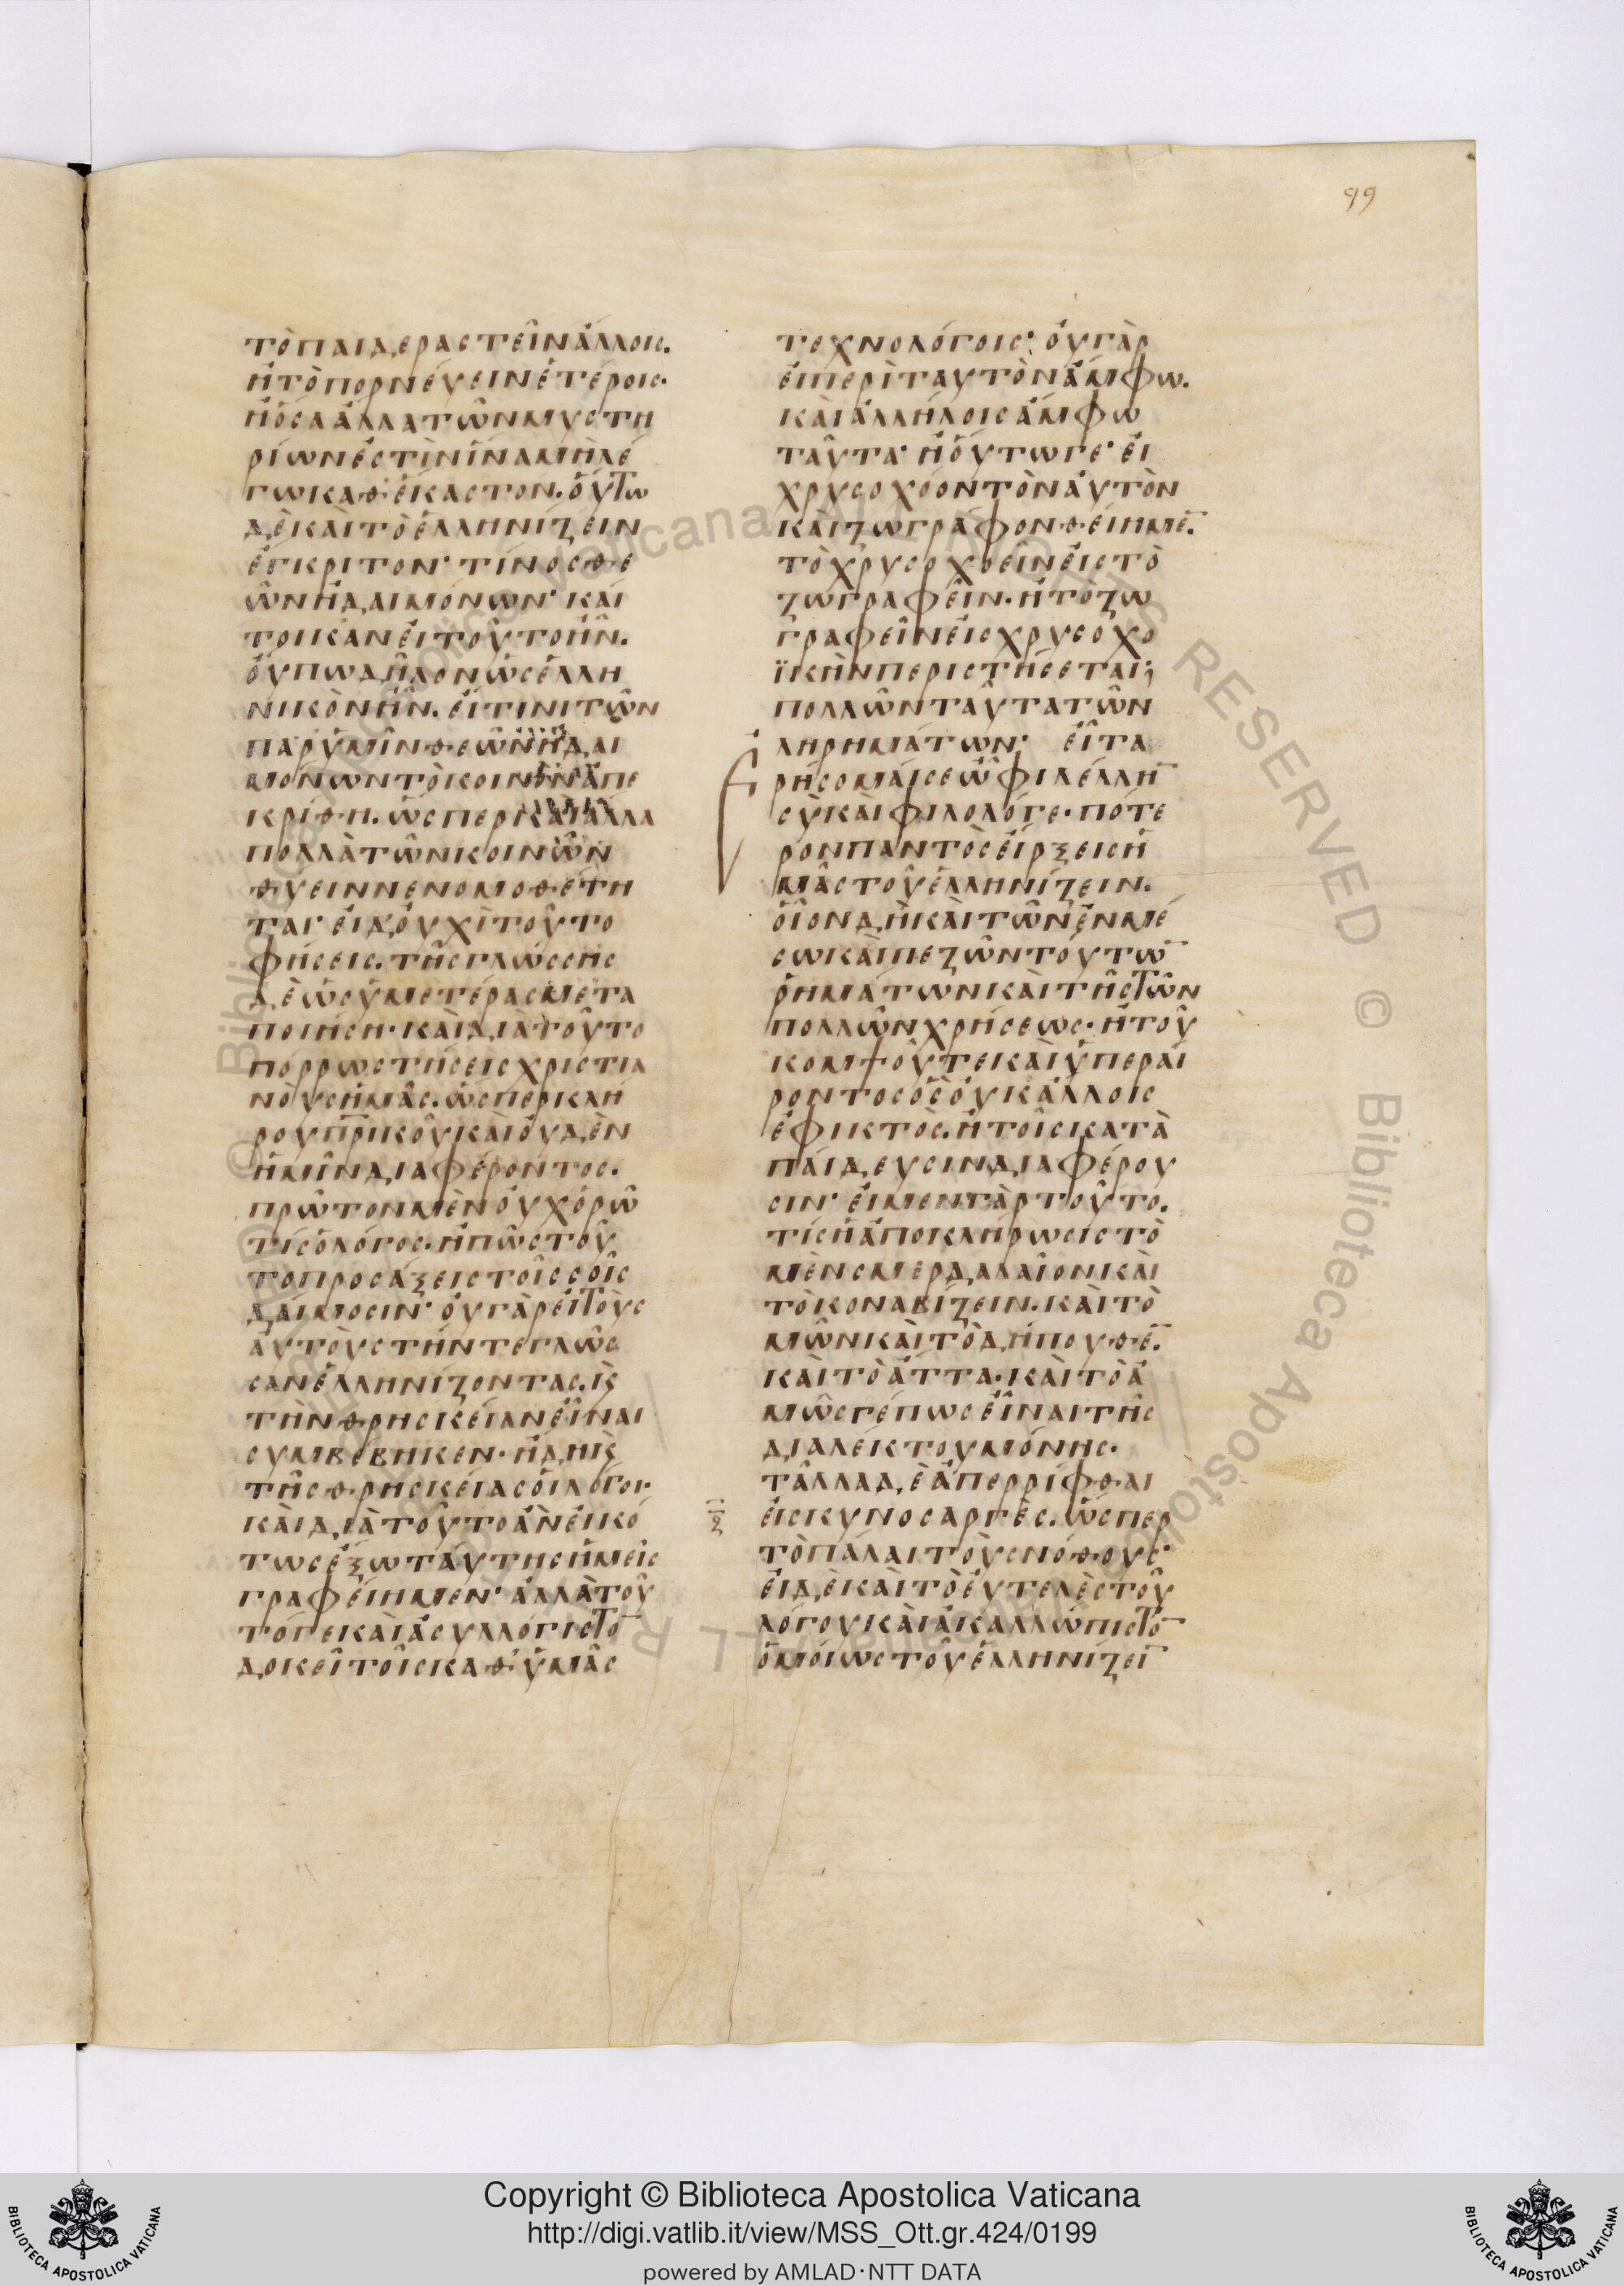 99
τὸπαιδεραστεῖνἄλλοις.
ἢτὸπορνεύεινἑτέροις·
ἢὅσαἄλλατῶνμυστη
ρίωνἐστὶνἵναμὴλέ
γωκαθ'ἕκαστον. οὕτω
δὲκαὶτὸἑλληνίζειν
ἔγκριτον· τίνοσθε
ῶνἢδαιμόνων· καί
τοικἂνεἰτοῦτοἦν.
οὔπωδῆλονὡσἑλλη
νικὸνἦν. εἴτινιτῶν
παρ'ὑμῖνθεῶνἢδαι
μόνωντὸκοινὸνἀπε
κρίθη. ὥσπερκαὶἄλλα
πολλὰτῶνκοινῶν
θύεινvενομοθέτη
ται· εἰδ'οὐχὶτοῦτο
φήσεις. τῆσγλώσσης
δὲὡσὑμετέρασμετα
ποιήση· καὶδιὰτοῦτο
πόρρωστήσεισχριστια
νοὺσἡμᾶς. ὥσπερκλή
ρουπρικοῦκαὶοὐδὲν
ἡμῖνδιαφέροντος.
πρῶτονμὲνοὐχὁρῶ
τίσὁλόγος. ἢπῶστοῦ
τοπροσάξειστοῖσσοῖς
δαίμοσιν· οὐγὰρεἰτοὺς
αὐτοὺστήντεγλῶσ
σανἑλληνίζοντας. κ
τὴνθρησκείανεἶναι
συμβέβηκεν· ἤδηκ
τῆσθρησκείασοἱλόγοι·
καὶδιὰτοῦτοἂνεἰκό
τωσἔξωταύτησἡμεῖς
γραφείημεν· ἀλλὰτοῦ
τόγεκαὶἀσυλλόγιστο̄
δοκεῖτοῖσκαθ'ὑμᾶς
τεχνολόγοις· οὐγὰρ
εἰπερὶταυτὸνἄμφω.
καὶἀλλήλοισἄμφω
ταῦτα· ἢοὕτωγε· εἰ
χρυσοχόοντὸναὐτὸν
καὶζωγράφονθείημε̄.
τὸχρυσοχοεῖνεἰστὸ
ζωγραφεῖν. ἢτὸζω
γραφεῖνεἰσχρυσοχο
ϊκὴνπεριστήσεται;
πολλῶνταῦτατῶν
ληρημάτων· εἶτα
ρήσομαίσεὦφιλέλλη̄
σὺκαὶφιλολόγε· πότε
ρονπαντὸσεἴρξεισἡ
μᾶστοῦἑλληνίζειν.
οἷονδὴκαὶτῶνἐνμέ
σωκαὶπεζῶντούτω̄
ῥημάτωνκαὶτῆστῶν
πολλῶνχρήσεως· ἢτοῦ
κομψοῦτεκαὶὑπεραί
ροντοσὃσοὐκἄλλοις
ἐφικτός. ἢτοῖσκατὰ
παίδευσινδιαφέρου
σιν· εἰμενγὰρτοῦτο.
τίσἡἀποκλήρωσιστὸ
μὲνσμερδαλαῖονκαὶ
τὸκοναβίζειν. καὶτὸ
μῶνκαὶτὸδήπουθε̄.
καὶτὸἄττα· καὶτὸἁ
μῶσγέπωσεἶναιτῆς
διαλέκτουμόνης·
τἆλλαδὲἀπερρίφθαι
εἰσκυνοσαργὲς. ὥσπερ
τὸπάλαιτοὺσνόθους·
εἰδὲκαὶτὸεὐτελὲστοῦ
λόγουκαὶἀκαλλώπιστο̄
ὁμοίωστοῦἑλληνίζεῑ
Copyright © Biblioteca Apostolica Vaticana
http://digi.vatlib.it/view/MSS_Ott.gr.424/0199
powered by AMLAD·NTT DATA